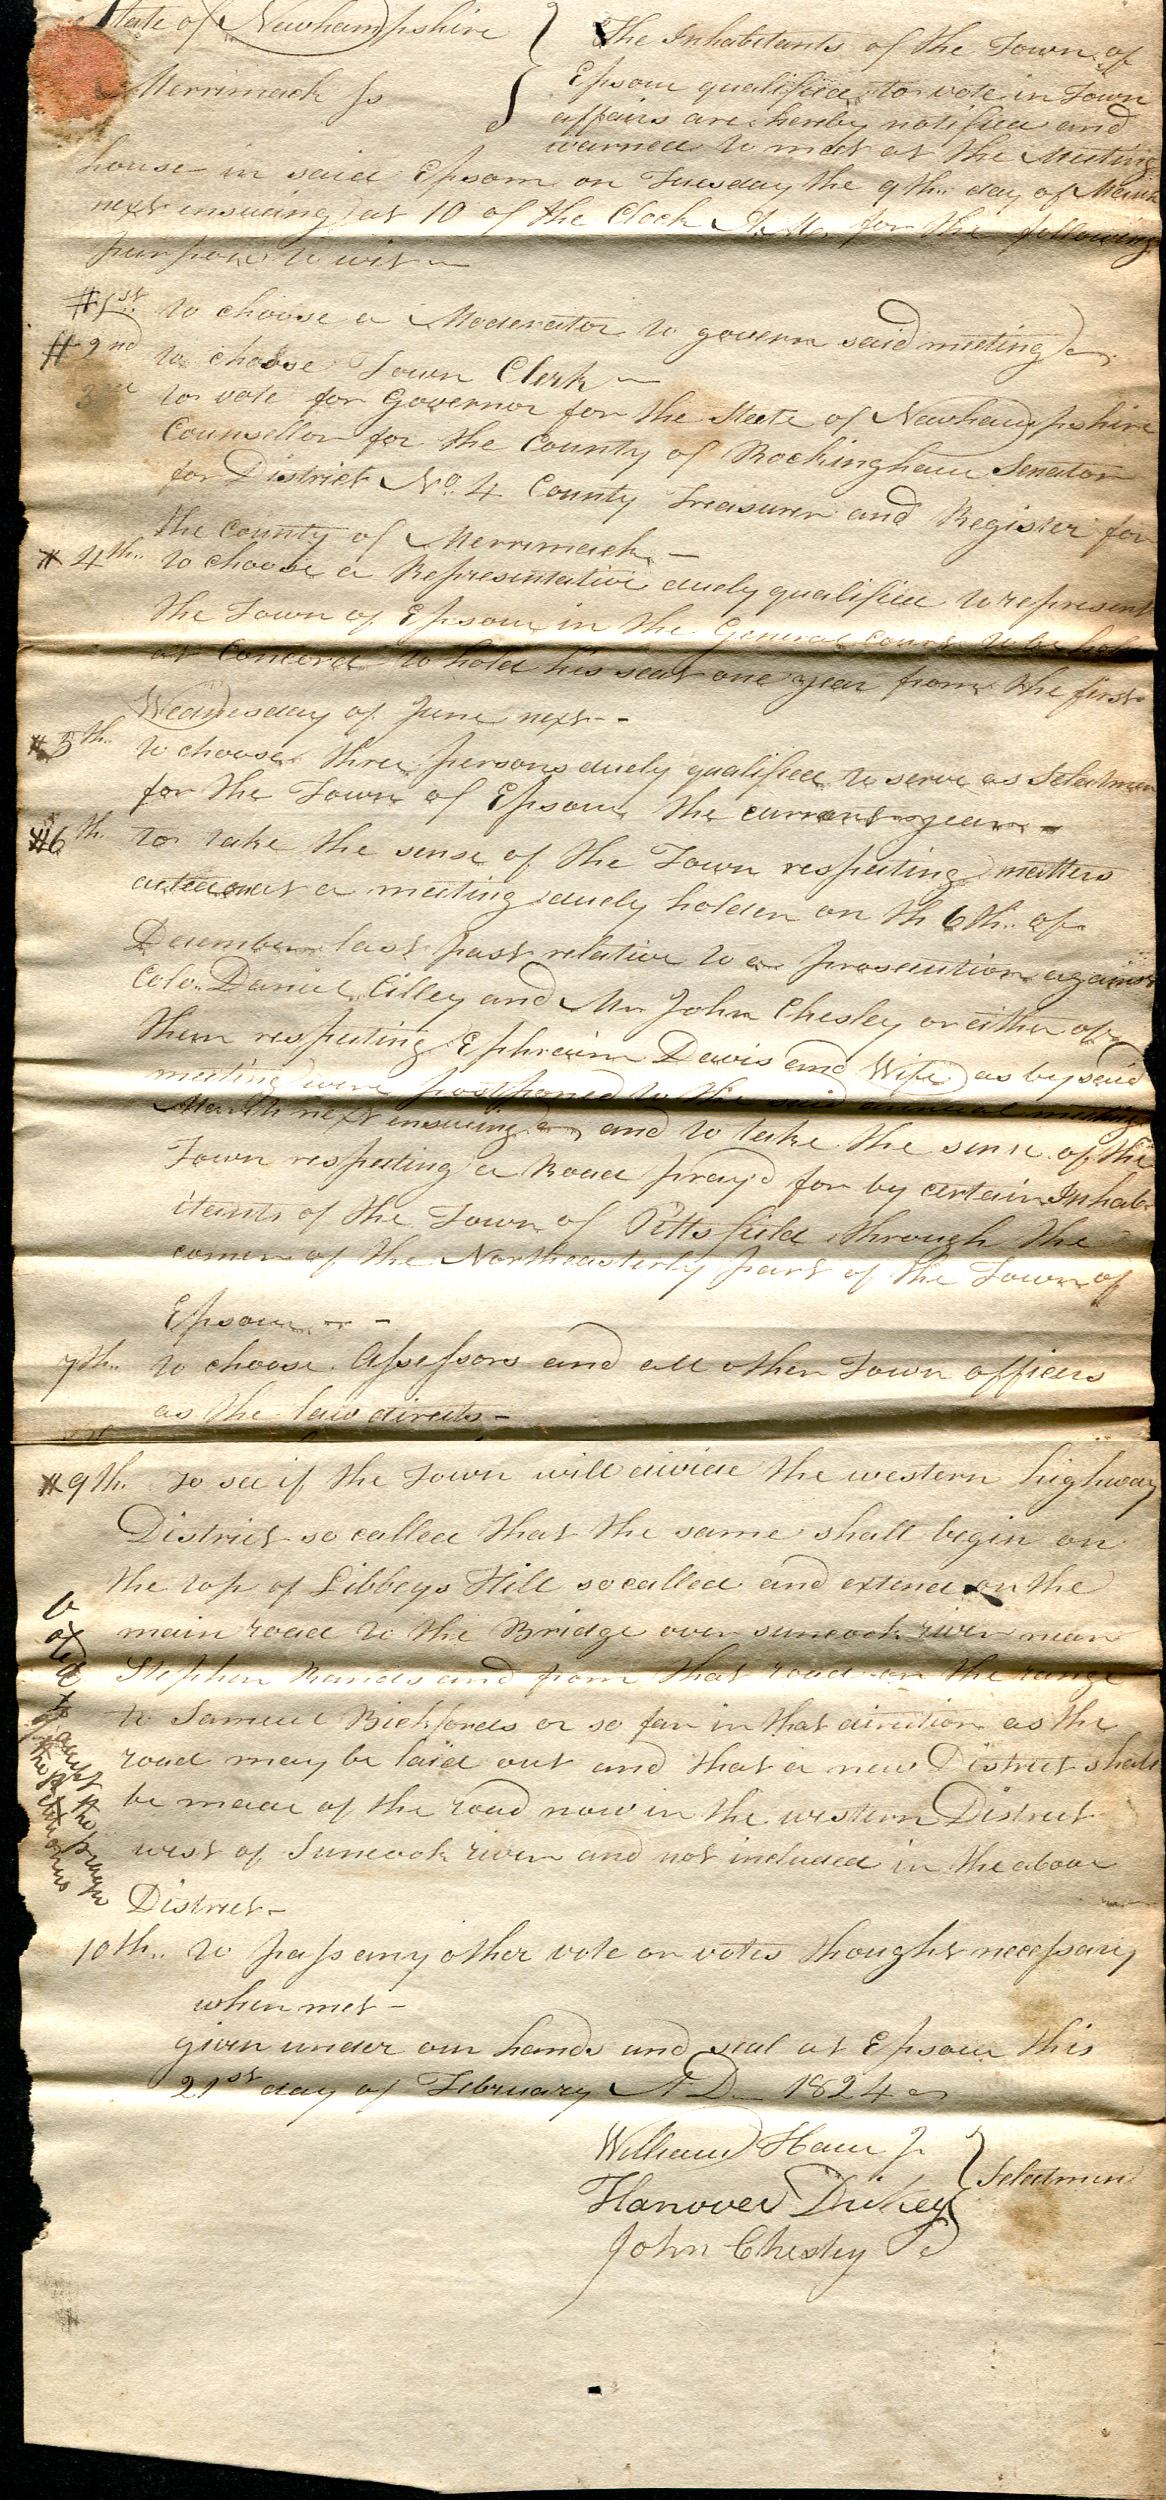 State of Newhampshire
Merrimack ss
The Inhabitants of the Town of
Epsom qualified to vote in Town
affairs are hereby notified and
warned to meet at the Meeting
house in said Epsom on Tuesday the 9th day of March
next ensuing at 10 of the Clock A.M. for the following
purposes to wit
#1st to choose a Moderator to govern said meeting
#2nd to choose Town Clerk
3rd to vote for Governor for the State of Newhampshire
Counsellor for the County of Rockingham Senator
for District No. 4 County Treasurer and Register for
the County of Merrimack
#4th to choose a Representative duely qualified to represent
the Town of Epsom in the General Court to be hol
at Concord to hold his seat one year from the first
Wednesday of June next
#5th to choose three persons duely qualified to serve as Selectmen
for the Town of Epsom the current year
#6th to take the sense of the Town respecting matters
acted on at a meeting duely holden on th 6th of
December last past relative to a prosecution against
Colo. Daniel Cilley and Mr John Chesley or either of
them respecting Ephraim Davis and Wife as by said
meeting were postponed to the said annual meeting
March next ensuing and to take the sense of the
Town respecting a Road pray'd for by certain Inhab
itants of the Town of Pittsfield through the
corner of the Northeasterly part of the Town of
Epsom
7th to choose Assessors and all other Town officers
as the law directs
#9th To see if the Town will divide the western highway
District so called that the same shall begin on
the top of Libbeys Hill so called and extend on the
main road to the Bridge over suncook river near
Stephen Rands and from that road on the range
to Samuel Bickfords or so far in that direction as the
road may be laid out and that a new District shall
be made of the road now in the western District
west of Suncook river and not included in the above
District
Voted to accept the prayer
of the petitioners
10th to pass any other vote or votes thought necessary
when met
given under our hands and seal at Epsom this
21st day of February AD 1824
William Ham Jr
Hanover Dickey
John Chesley
Selectmen